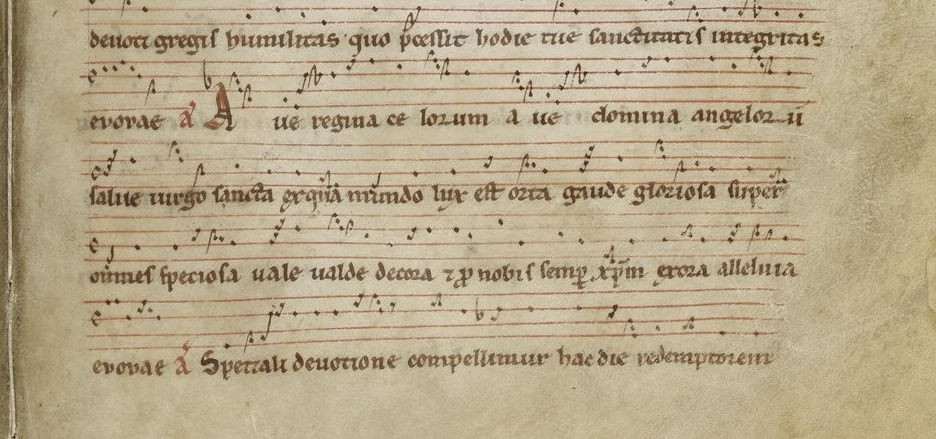 deuoti gregis humilitas quo p̄cessit hodie tue sanctitatis integritas
euouae a᷒ Aue regina ce lorum a ue domina angelor ū
salue uirgo sancta ex qua mundo lux est orta gaude gloriosa super
om̄nes speciosa uale ualde decora ⁊ ꝓ nobis semꝑ xp̄m exora alleluia
euouae a᷒ Speciali deuotione compellimur hac die redemptorem